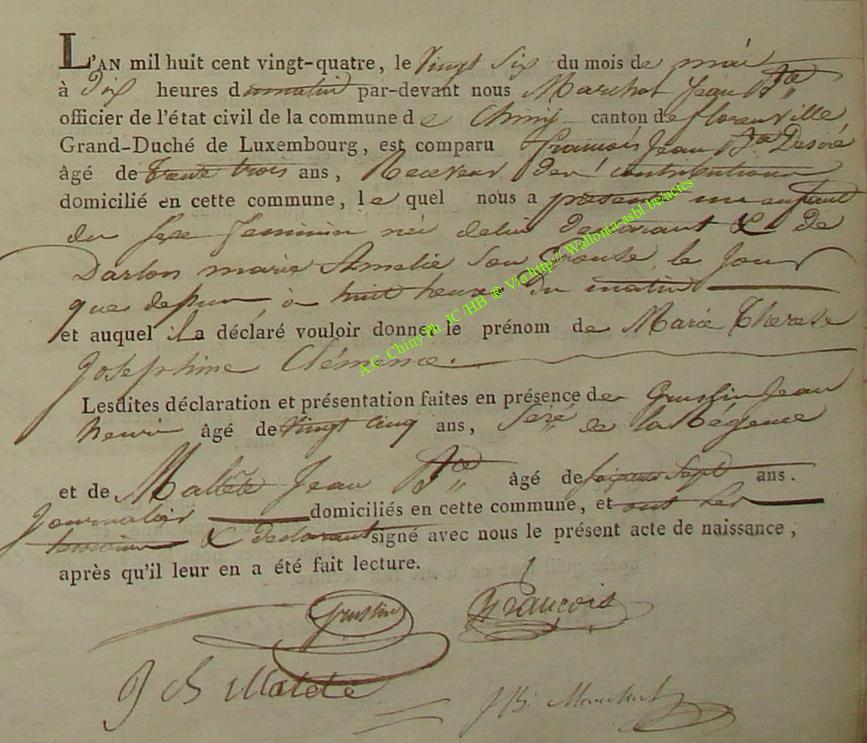 L'AN mil huit cent vingt-quatre, le Vingt Six du mois de mai
à Dix heures du matin par-devant nous Marchot Jean Bte
officier de l'état civil de la commune de Chiny canton de florenville
Grand-Duché de Luxembourg, est comparu François Jean Bte Desiré
âgé de trente trois ans, Receveur des contributions
domicilié en cette commune, lequel nous a presenté un enfant
du sexe feminin née de lui declarant & de
Darlon marie Amelie son Epouse le Jour
que dessus à huit heures du matin
et auquel il a déclaré vouloir donner le prénom de Marie Therese
Josephine Clémence.
Lesdites déclaration et présentation faites en présence de Gruslin Jean
henri âgé de vingt cinq ans, de la Régence
et de Maltète Jean Bte âgé de soixante Sept ans.
Journalier domiciliés en cette commune, et ont les
temoins & declarant signé avec nous le présent acte de naissance,
après qu'il leur en a été fait lecture.
Gruslin François
J B Matete
J B. Marchot
A.C. Chiny Ph. JC /HB ® Via http:// Wallonia-asbl.be/actes